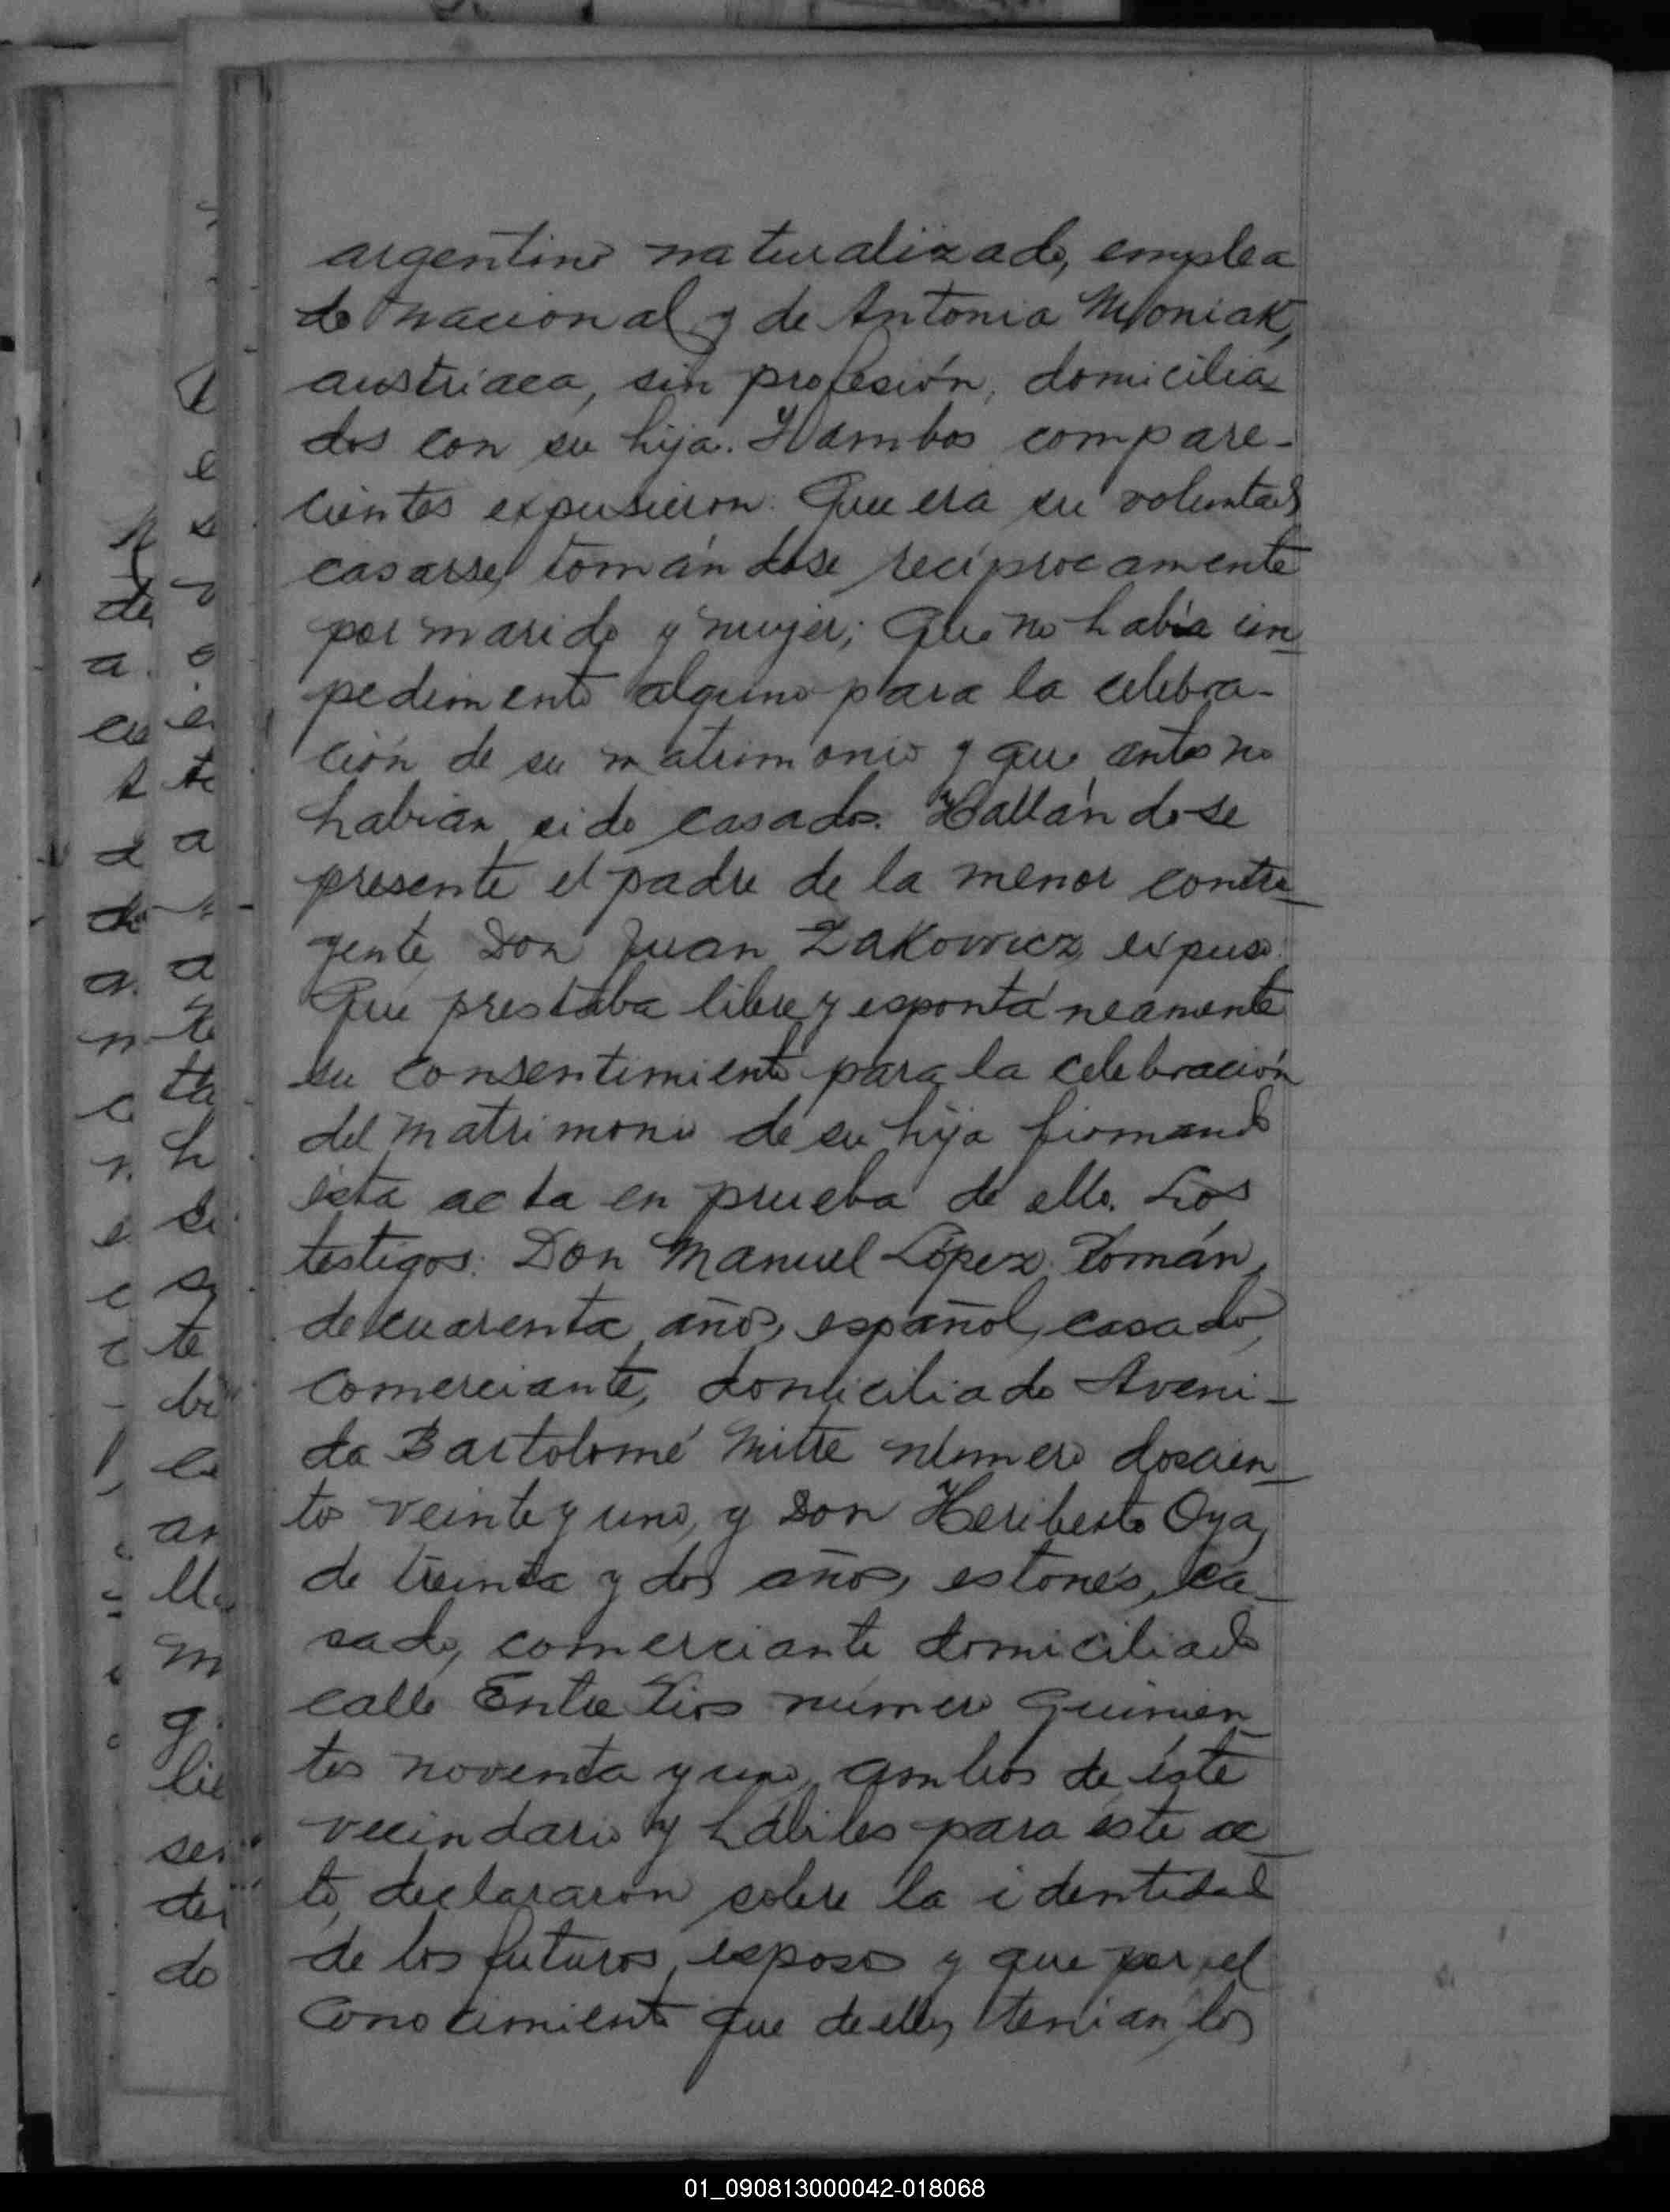 argentino naturalizado, emplea
do nacional y de Antonia Moniak,
austriaca, sin profesión, domicilia
dos con su hija. Y ambos compare-
cientes expusieron: Que era su voluntad
casarse, tomándose recíprocamente
por marido y mujer; Que no había im
pedimento alguno para la celebra-
ción de su matrimonio y que antes no
habían sido casados. Hallándose
presente el padre de la menor contra
yente, Don Juan Zakowicz, expuso:
Que prestaba libre y espontáneamente
su consentimiento para la celebración
del matrimonio de su hija firmando
ésta acta en prueba de ello. Los
testigos: Don Manuel López Román,
de cuarenta años, español, casado,
comerciante, domiciliado Aveni-
da Bartolomé Mitre número doscien
tos veinte y uno, y Don Heriberto Oya,
de treinta y dos años, estonés, ca
sado, comerciante domiciliado
calle Entre Rios número quinien
tos noventa y uno, ambos de éste
vecindario y hábiles para éste ac
to, declararon sobre la identidad
de los futuros esposos y que por el
conocimiento que de ellos tenían, los
01_090813000042-018068